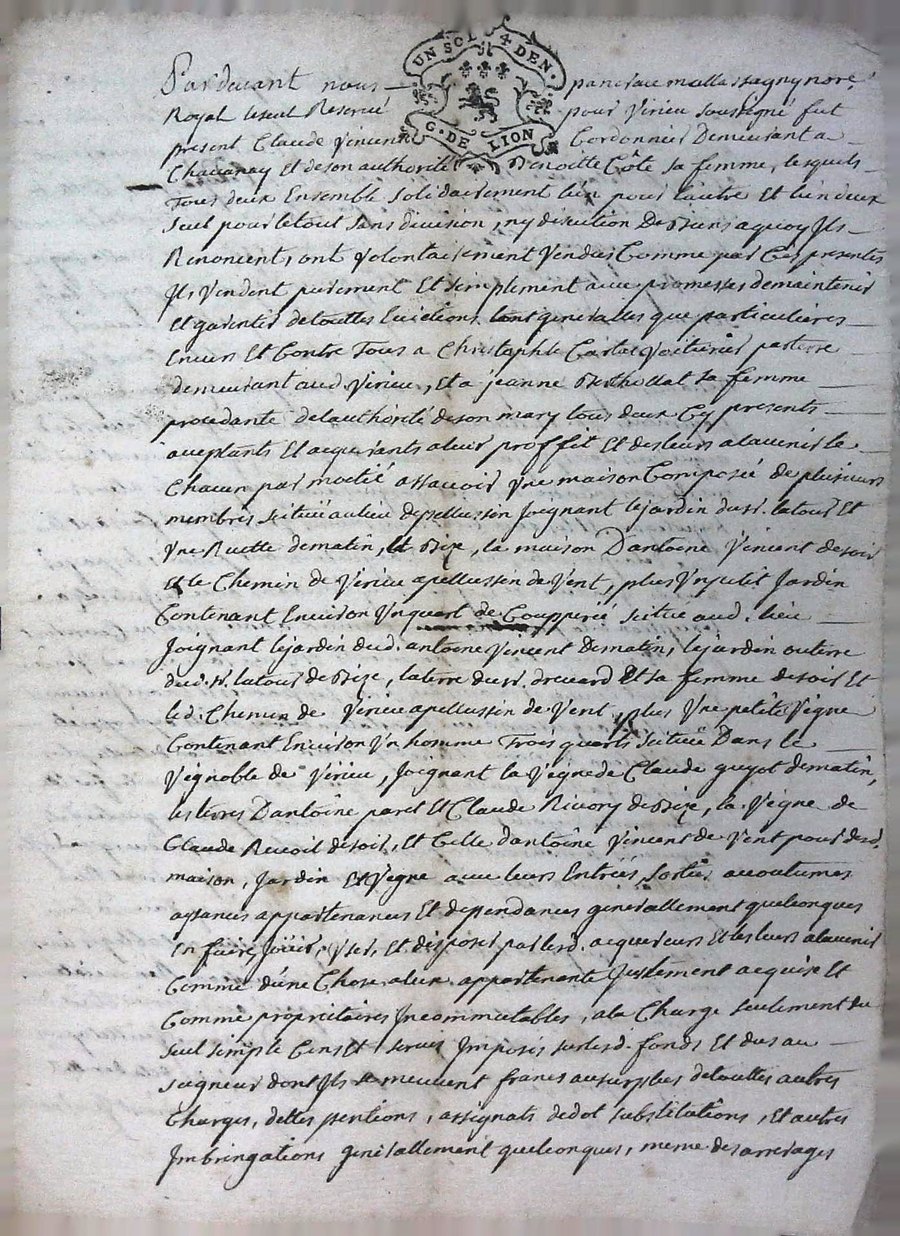 UN SOL 4 DEN.
G. DE LION
Pardevant nous pancrace mallassagny nore.
Royal le seul Reservé pour Virieu soussigné fut
present Claude Vincent Cordonnier Demeurant a
Chavanay Et de son authorité Benoitte Côte sa femme, lesquels
Tous deux Ensemble solidairement l'un pour l'autre Et l'un deux
seul pour le tout sans division, ny discution De Biens a quoy Ils
Renoncent, ont Volontairement Vendus Comme par Ces presentes
Ils Vendent purement Et simplement avec promesses de maintenir
Et garentir de touttes Evictions tant generalles que particulieres
Envers Et Contre Tous a Christophle Voiturier par terre
demeurant aud. Virieu, Et a jeanne Berthollat sa femme
procedante de l'authorité de son mary tous deux Cy presents
aceptants Et acquerants a leur proffit Et des leurs a l'avenir le
Chacun par moetié assavoir Une maison Composée de plusieurs
membres scituée au lieu de pellussin Joignant le jardin du sr. latour Et
Une Ruette de matin, Et Bize, la maison D'antoine Vincent de soir
Et le Chemin de Virieu a pellussin de Vent, plus Un petit Jardin
Contenant Environ Un quart de Coupperée scitué aud. lieu
Joignant le jardin dud. antoine Vincent de matin, le jardin ou terre
dud. sr. latour de Bize, la terre du sr. drevard Et sa femme de soir Et
led. Chemin de Virieu a pellussin de Vent, plus Une petite Vigne
Contenant Environ Un homme Trois quarts scituée Dans le
Vignoble de Virieu, Joignant la Vigne de Claude guyot de matin,
les terres D'antoine paret Et Claude Rivory de Bize, la Vigne de
Claude Revoil de soir, Et Celle d'antoine Vincent de Vent pour desd.
maison, Jardin Et Vigne avec leurs Entrées, sorties acoutumes
aisances appartenances Et dependances generallement quelconques
En faire, Jouir, User, Et disposer par lesd. acquereurs Et les leurs a l'avenir
Comme d'une Chose a Eux appartenante Justement acquise Et
Comme propriétaires Incommutables, a la Charge seulement du
seul simple Cens Et servis Imposés sur lesd. fonds Et dus au
seigneur dont Ils se meuvent francs au surplus de touttes autres
Charges, dettes pentions, assignats de dot substitutions, Et autres
Imbringations generallement quelconques, meme des arrerages